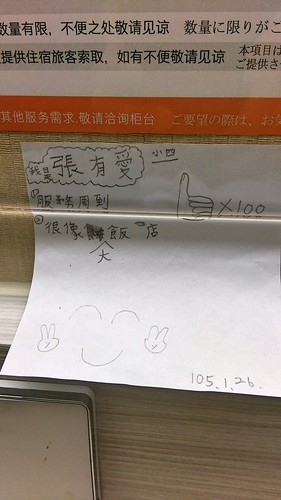 数量有限，不便之处敬请见谅 数量に限りがこ
提供住宿旅客索取，如有不便敬请见谅 本項目は
ご提供さ
其他服务需求,敬请洽询柜台 ご要望の際は、お気
我是 張有愛 小四
①服務周到 X100
②很像大飯店
105.1.26.